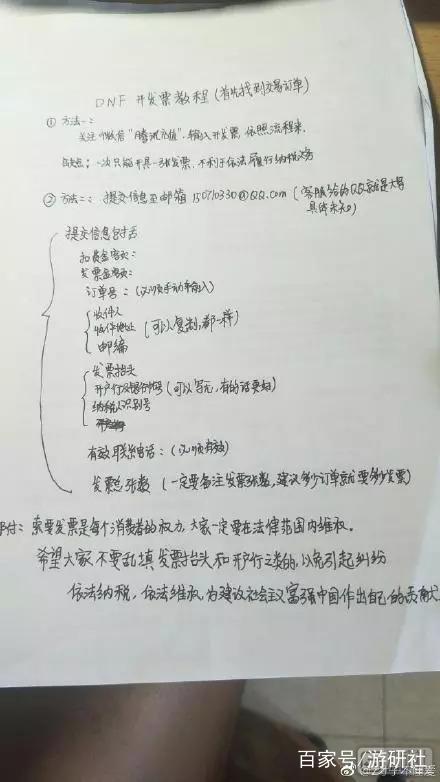 DNF 开发票教程(首先找到交易订单)
① 方法一:
关注微信"腾讯充值",输入开发票,依照流程来,
缺点:一次只能开具一张发票,不利于依法履行纳税义务
② 方法二: 提交信息至邮箱 @QQ.com (客服给的QQ
提交信息包括
扣费金额:
发票金额:
订单号:(必须手动单输入)
收件人
收件地址 (可以复制,都一样)
邮编
发票抬头
开户行及银行帐号(可以写无,有的话要如)
纳税人识别号
有效联系电话:(必须有效)
发票总张数(一定要备注发票张数,建议多少订单就要多少发票)
附:索要发票是每个消费者的权力,大家一定要在法律范围内维权。
希望大家不要乱填发票抬头和开户行之类的,以免引起纠纷
依法纳税,依法维权,为建设社会主义富强中国作出自己的贡献
百家号/游研社